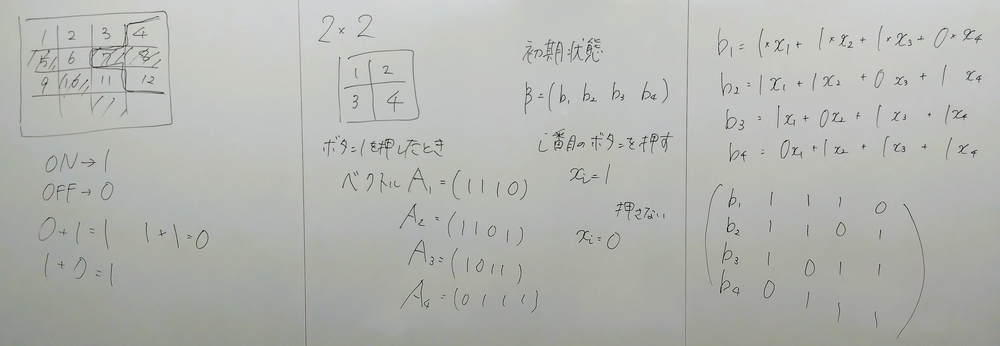 1 2 3 4
5 6 7 8
9 10 11 12
ON→1
OFF→0
0+1=1 1+1=0
1+0=1
2×2
1 2
3 4
ボタン1を押したとき
ベクトル A₁=(1 1 1 0)
A₂=(1 1 0 1)
A₃=(1 0 1 1)
A₄=(0 1 1 1)
初期状態
β=(b₁ b₂ b₃ b₄)
i番目のボタンを押す
xᵢ=1
押さない
xᵢ=0
b₁=1×x₁+1×x₂+1×x₃+0×x₄
b₂=1x₁+1x₂+0x₃+1x₄
b₃=1x₁+0x₂+1x₃+1x₄
b₄=0x₁+1x₂+1x₃+1x₄
b₁ 1 1 1 0
b₂ 1 1 0 1
b₃ 1 0 1 1
b₄ 0 1 1 1